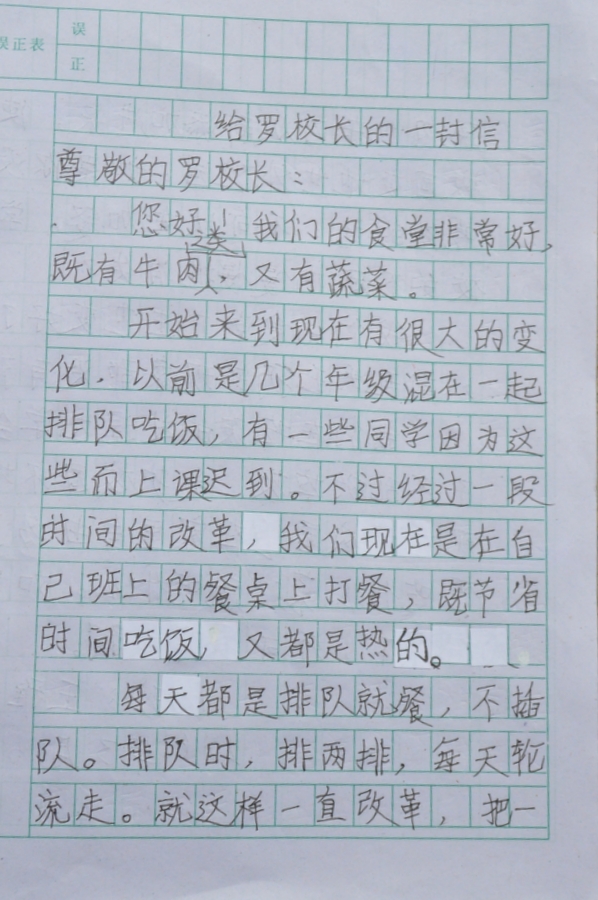 误正表
误
正
给罗校长的一封信
尊敬的罗校长：
您好！我们的食堂非常好，
既有牛肉类，又有蔬菜。
开始来到现在有很大的变
化，以前是几个年级混在一起
排队吃饭，有一些同学因为这
些而上课迟到。不过经过一段
时间的改革，我们现在是在自
己班上的餐桌上打餐，既节省
时间吃饭，又都是热的。
每天都是排队就餐，不插
队。排队时，排两排，每天轮
流走。就这样一直改革，把一